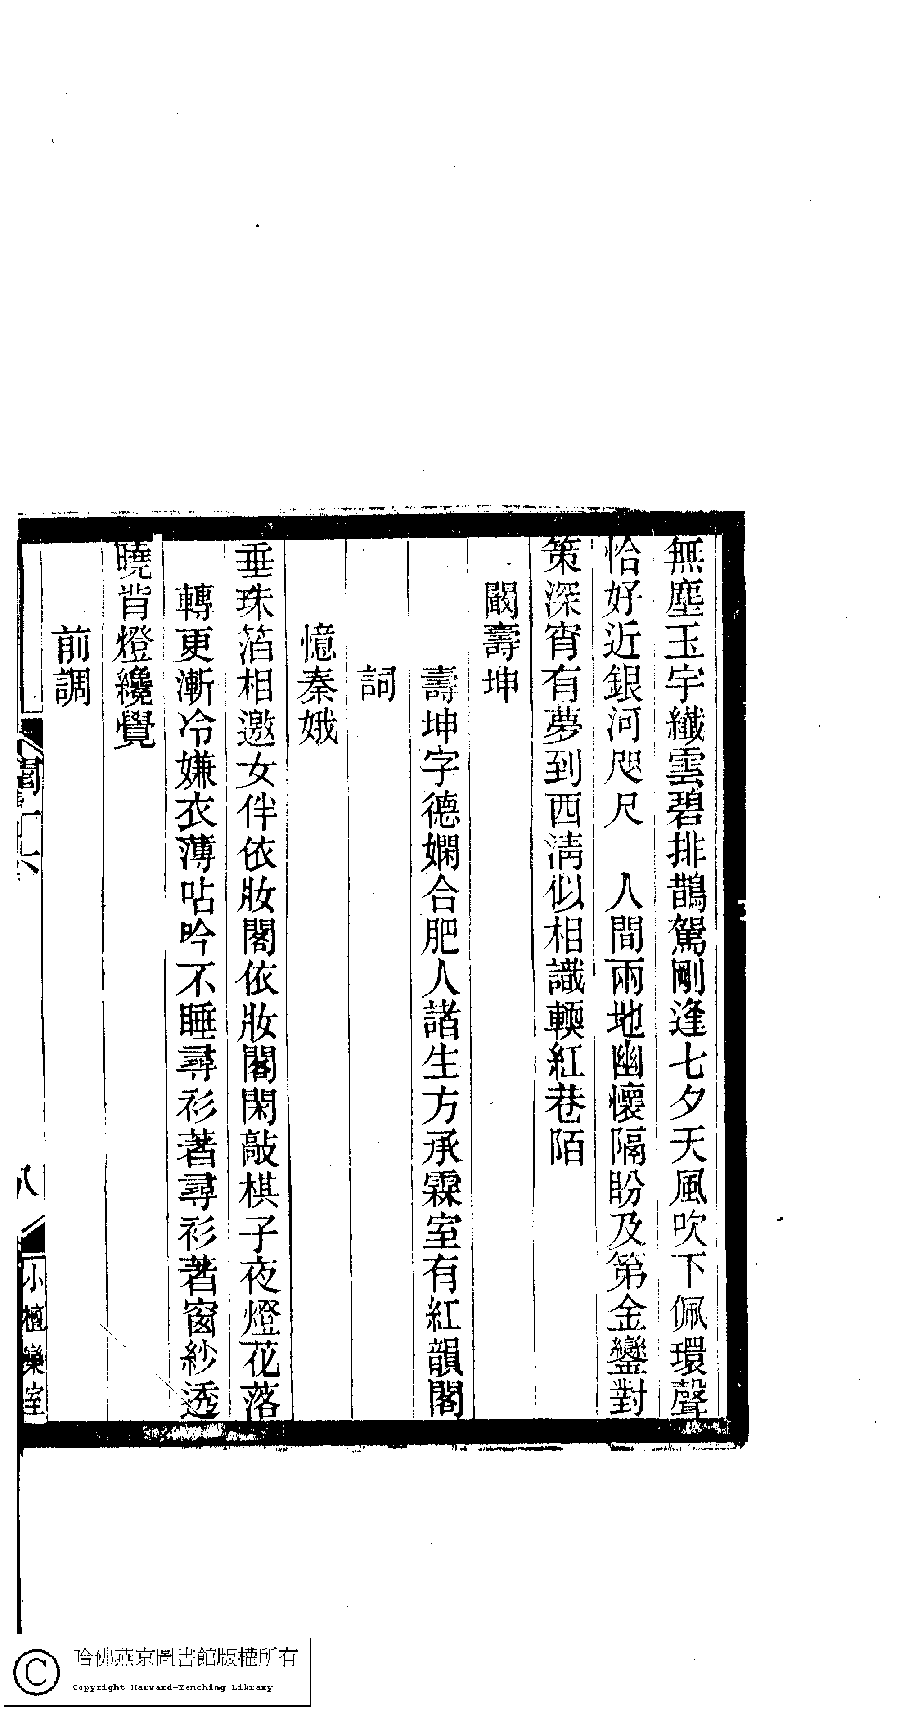 無塵玉宇纖雲碧排鵲駕剛逢七夕天風吹下佩環聲
恰好近銀河咫尺　人間兩地幽懷隔盼及第金鑾對
策深宵有夢到西清似相識輭紅巷陌
闞壽坤
壽坤字德嫻合肥人諸生方承霖室有紅韻閣
詞
憶秦娥
垂珠箔相邀女伴依妝閣依妝閣閑敲棋子夜燈花落
轉更漸冷嫌衣薄呫吟不睡尋衫著尋衫著窗紗透
曉背燈纔覺
前調
八
小檀欒室
哈佛燕京圖書館版權所有
Copyright Harvard-Yenching Library